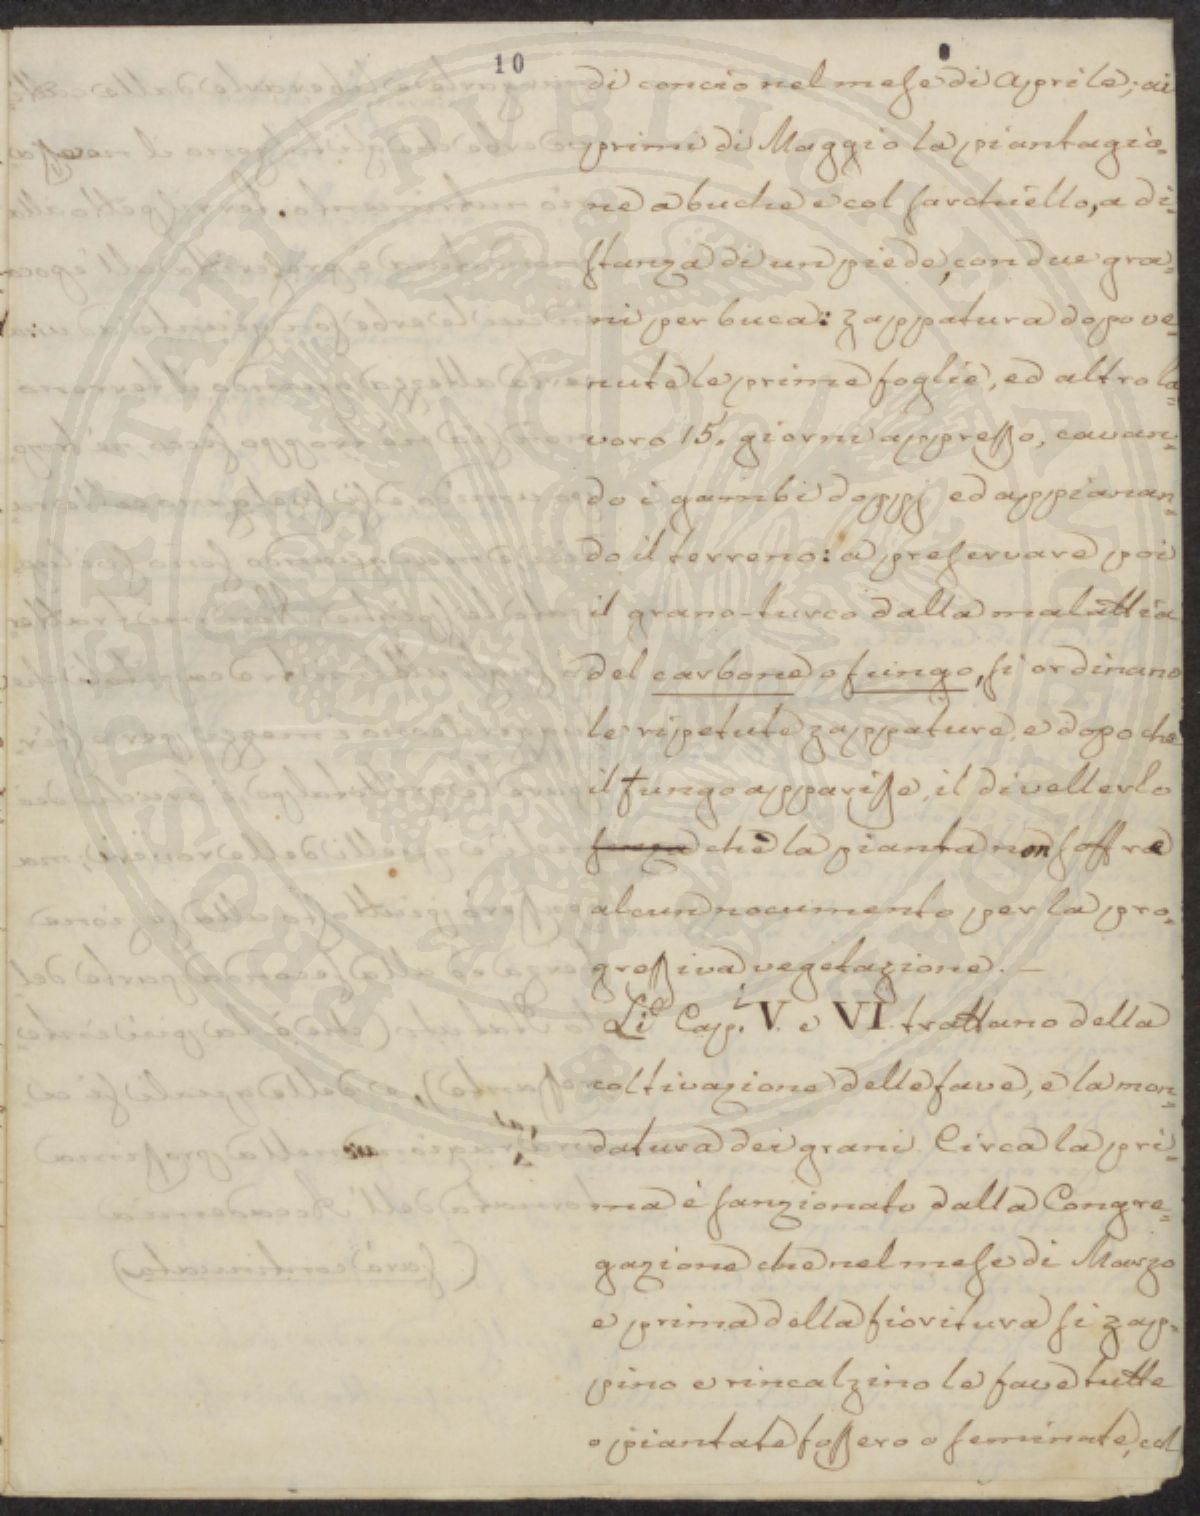 10
di concio nel mese di Aprile; ai
primi di Maggio la piantagio=
ne a buche e col sarchiello, a di=
stanza di un piede, con due gra=
ni per buca: zappatura dopo ve=
nute le prime foglie, ed altro la=
voro 15. giorni appresso, cavan=
do i gambi doppj ed appianan=
do il terreno: a preservare poi
il grano-turco dalla malattia
del carbone o fungo, si ordinano
le ripetute zappature, e dopo che
il fungo apparisse, il divellerlo
senza che la pianta non soffra
alcun nocumento per la pro=
gressiva vegetazione. —
Li Cap.i V. e VI. trattano della
coltivazione delle fave, e la mon=
datura dei grani. Circa la pri=
ma è sanzionato dalla Congre=
gazione che nel mese di Marzo
e prima della fioritura si zap=
pino e rincalzino le fave tutte
o piantate fossero o seminate, col